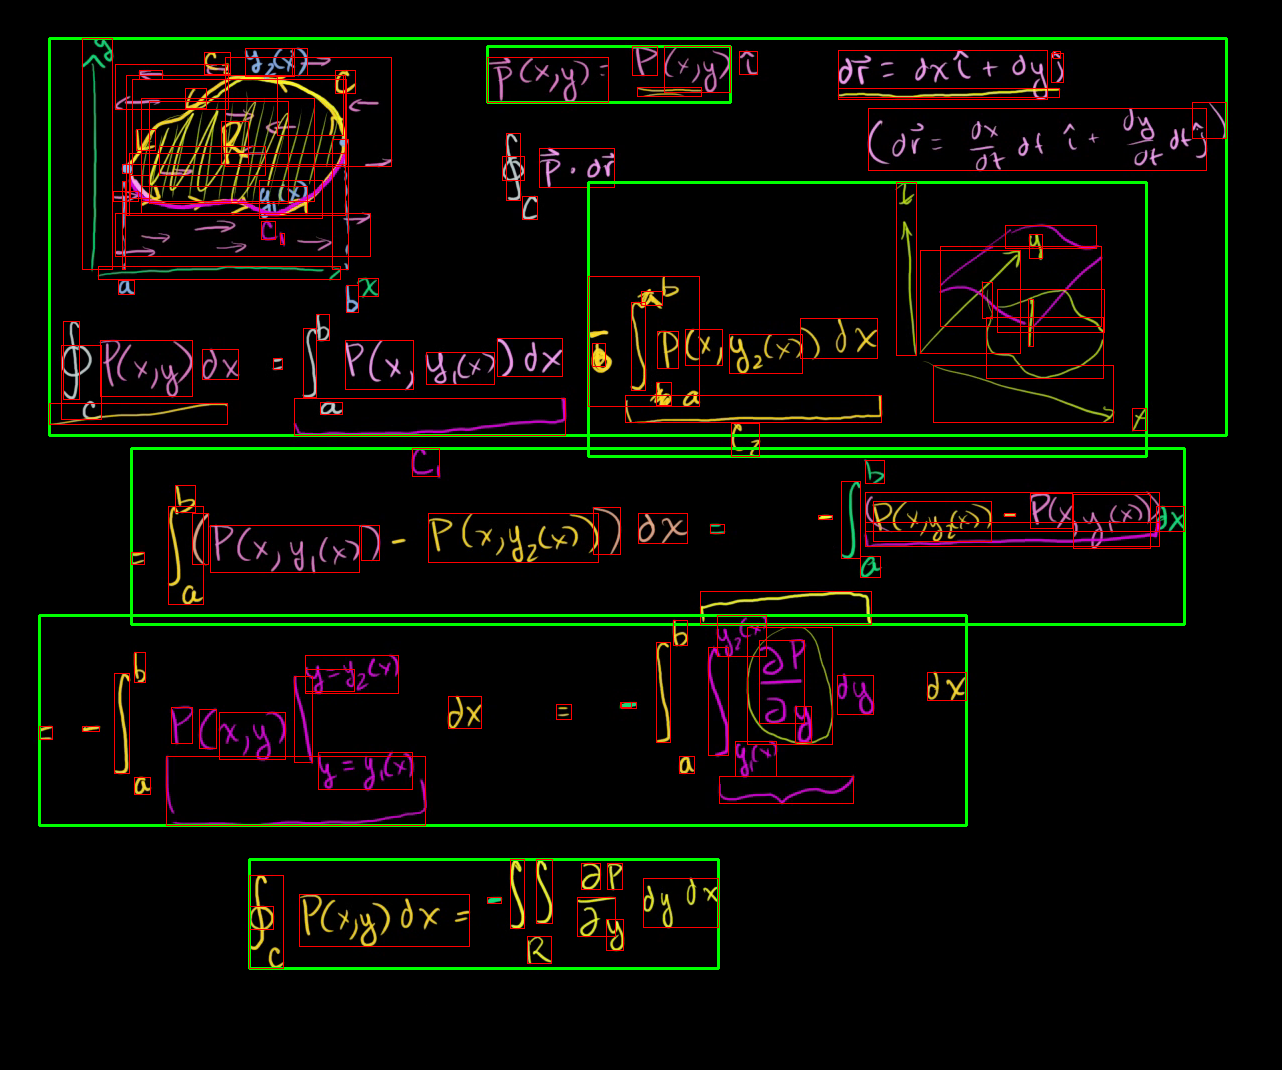 y C₂ y₂(x) C
R
y₁(x)
C₁
a b x
P⃗(x,y) = P(x,y) î
dr⃗ = dx î + dy ĵ
(dr⃗ = dx/dt dt î + dy/dt dt ĵ)
∮_C P⃗ · dr⃗
∮_C P(x,y) dx = ∫_a^b P(x, y₁(x)) dx + ∫_b^a P(x, y₂(x)) dx
C₁ C₂
y
x
= ∫_a^b (P(x, y₁(x)) - P(x, y₂(x))) dx = - ∫_a^b (P(x, y₂(x)) - P(x, y₁(x))) dx
= - ∫_a^b P(x,y) |_{y = y₁(x)}^{y = y₂(x)} dx = - ∫_a^b ∫_{y₁(x)}^{y₂(x)} ∂P/∂y dy dx
∮_C P(x,y) dx = - ∬_R ∂P/∂y dy dx